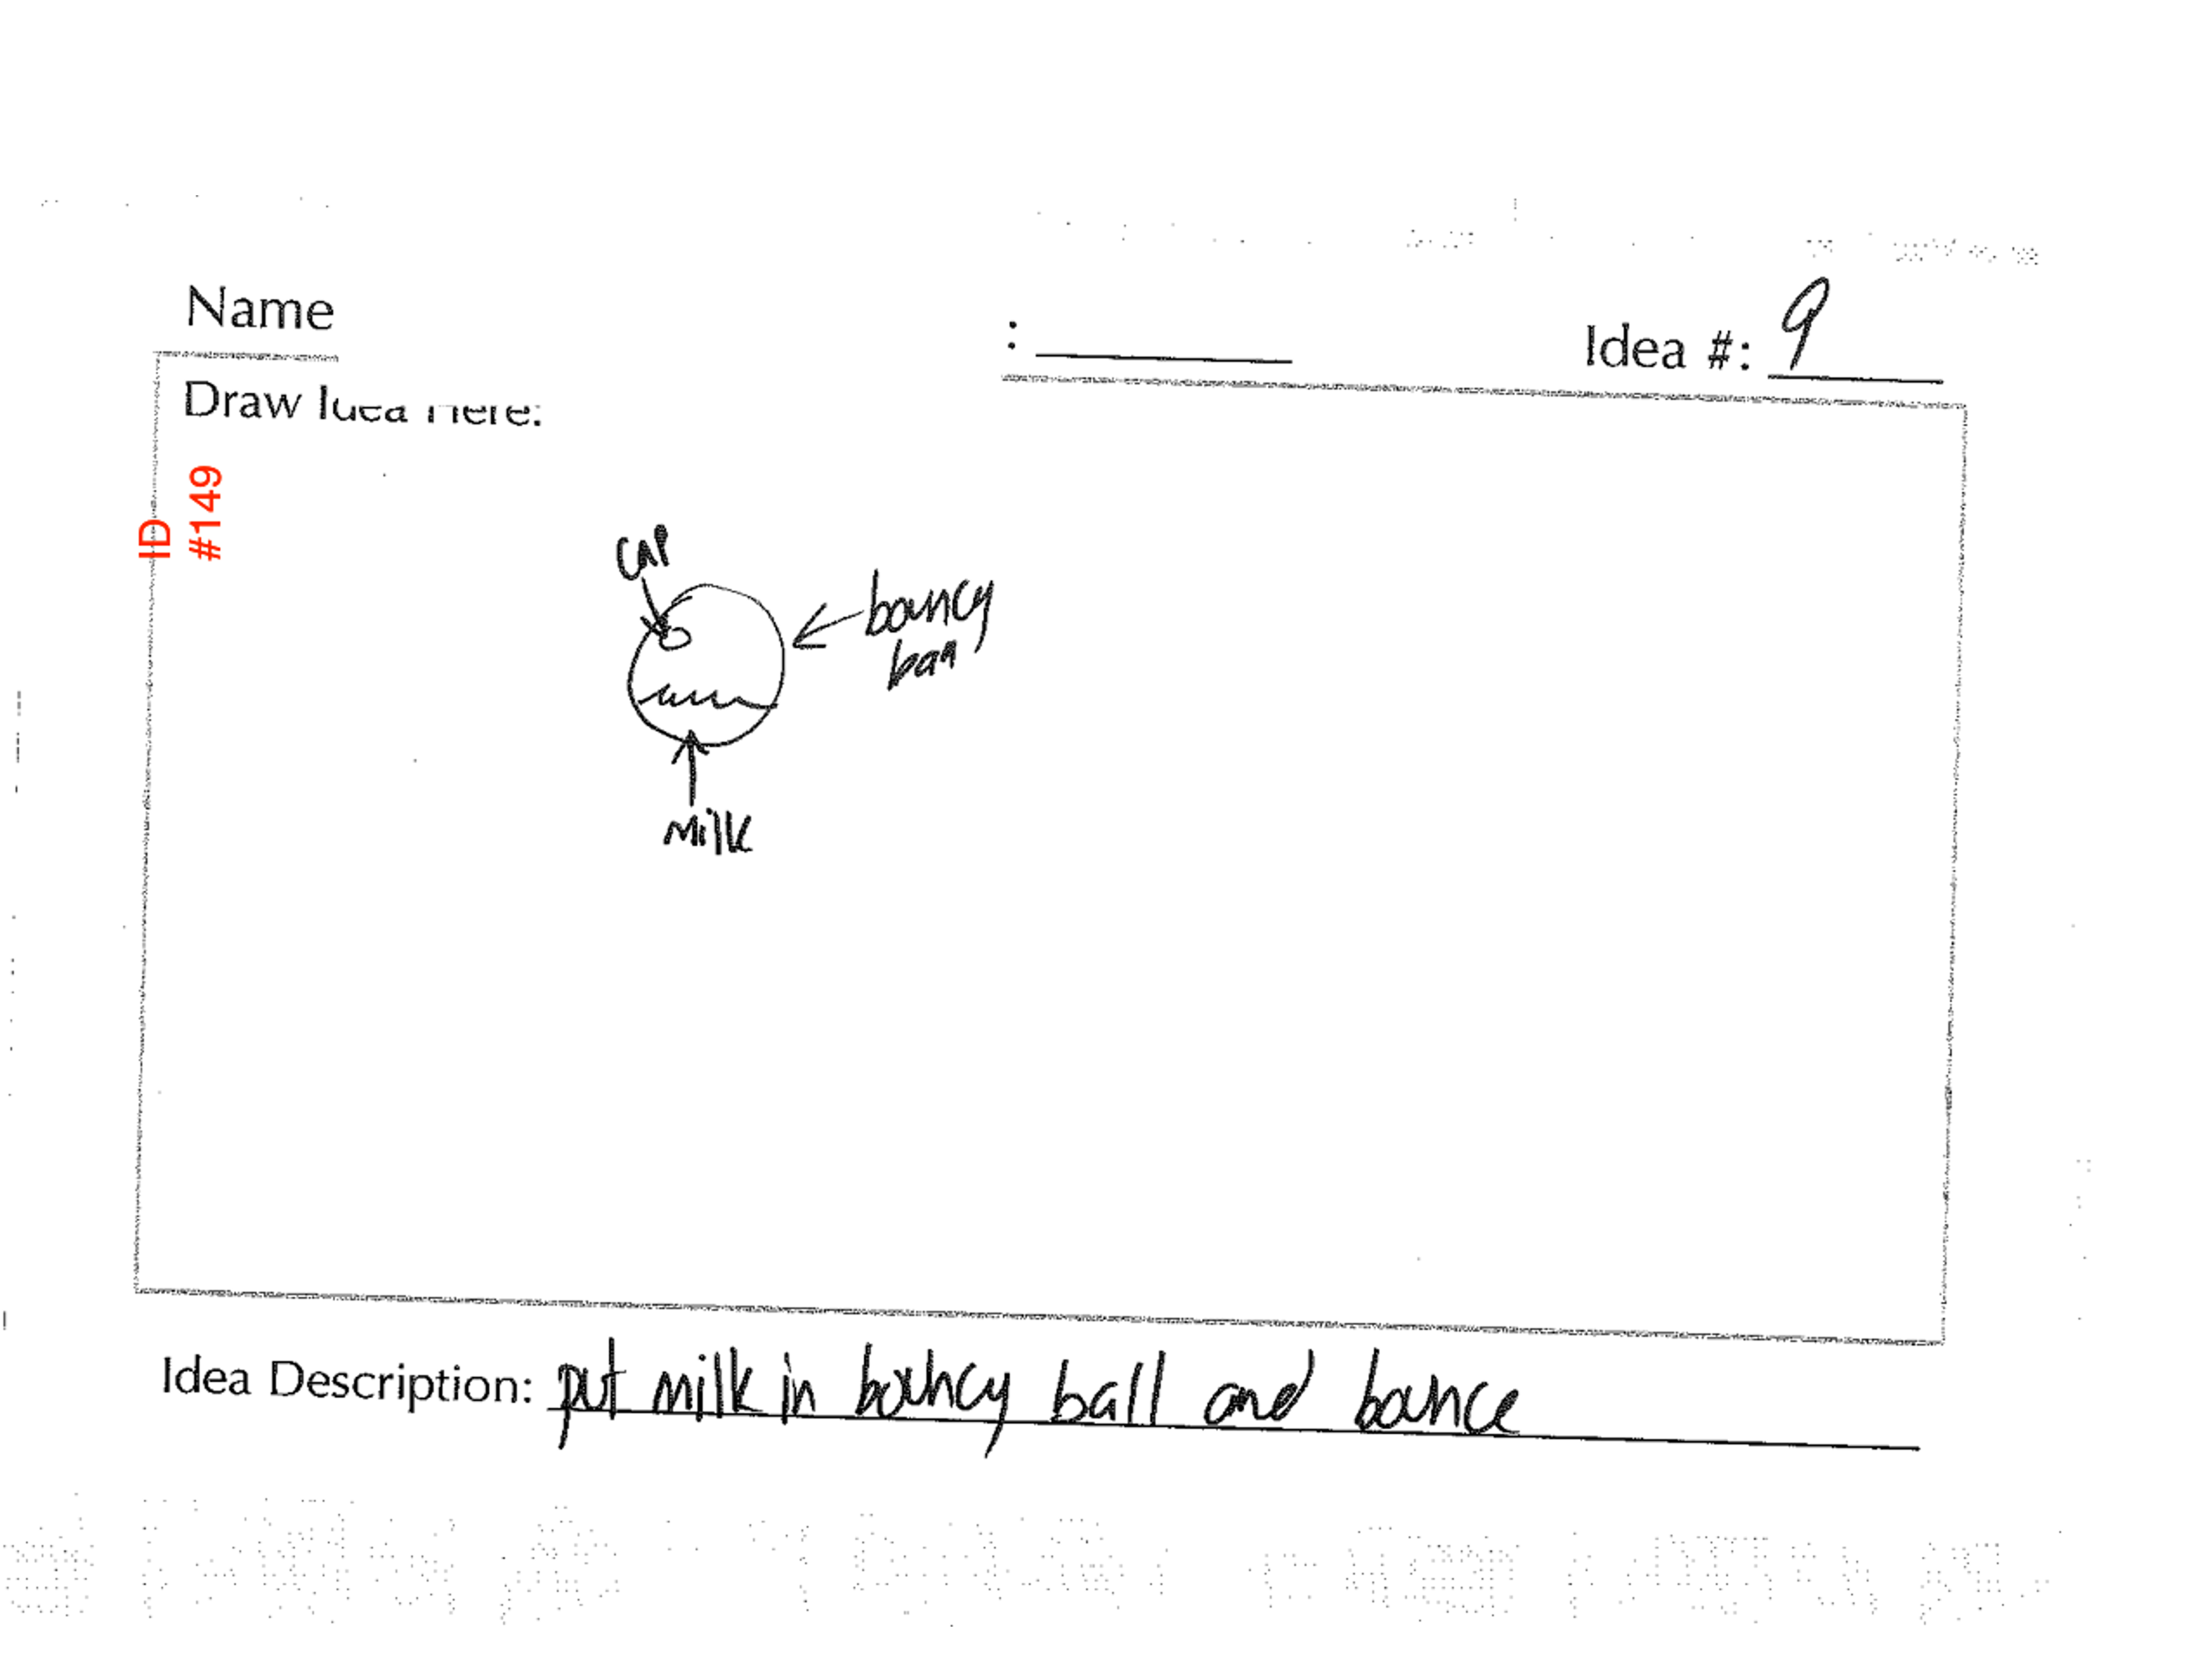 Name : Idea #: 9
Draw Idea Here:
ID
#149
cap
bouncy
ball
Milk
Idea Description: put milk in bouncy ball and bounce